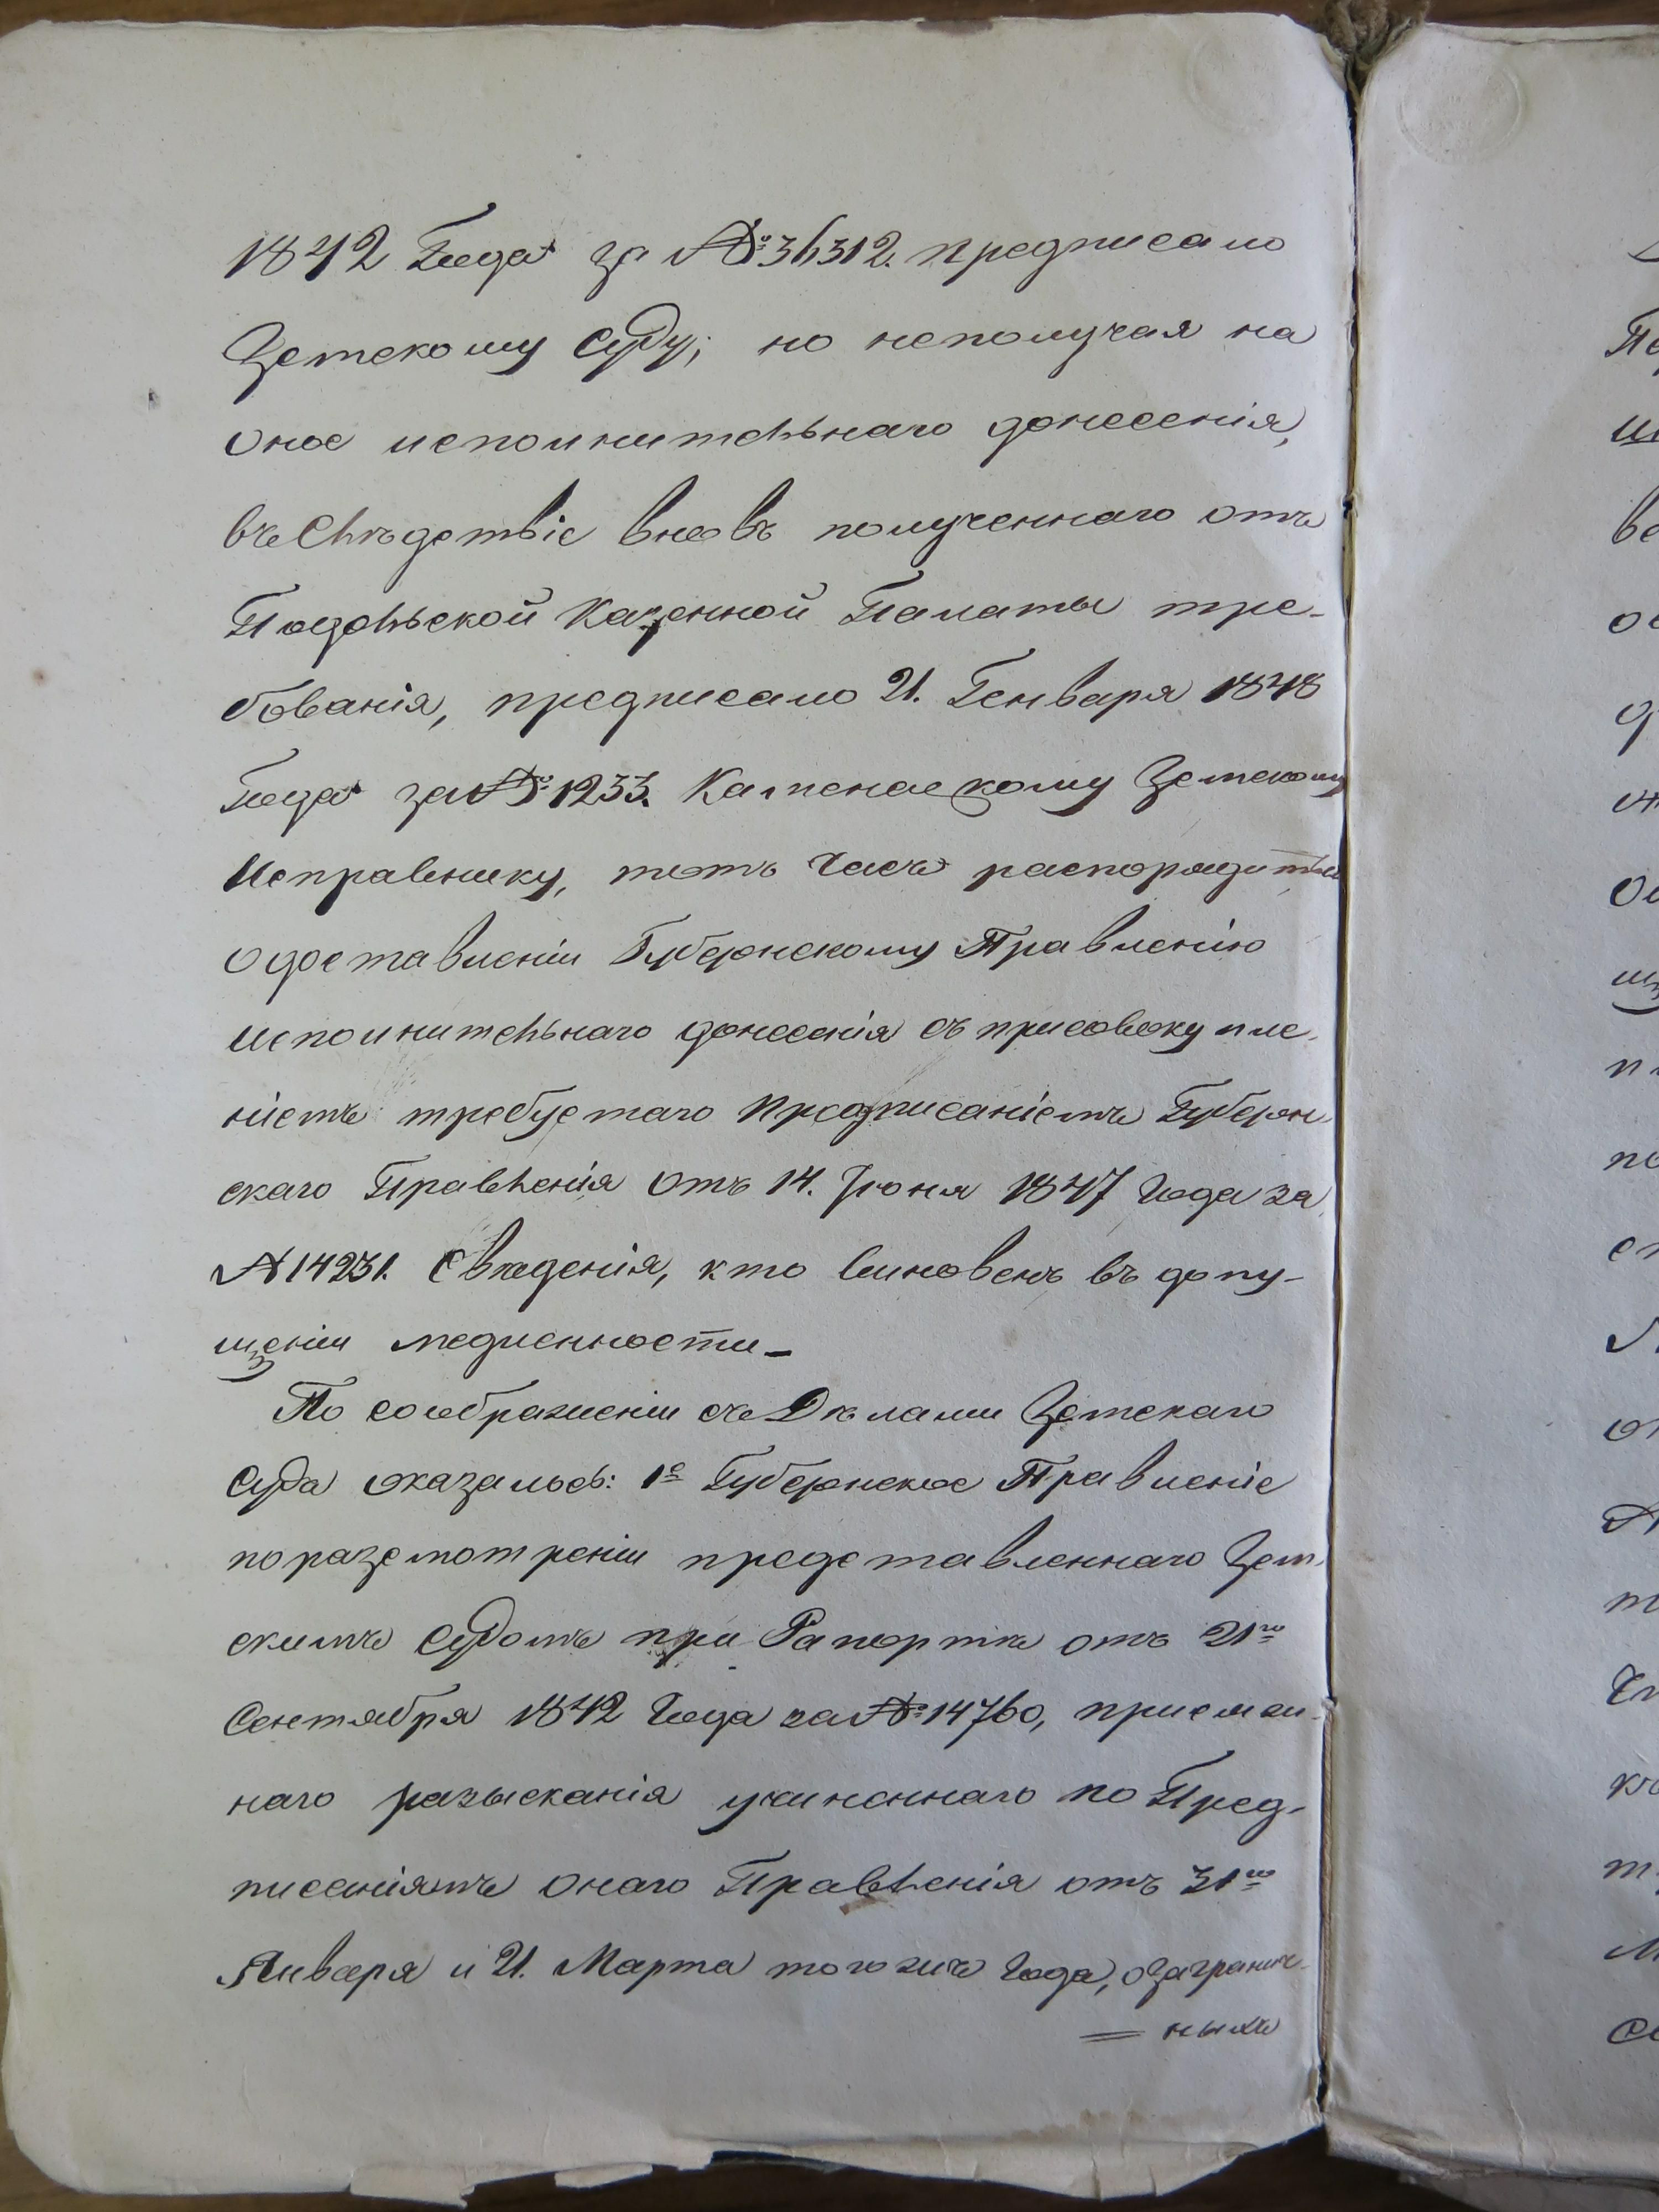 1842 Года за № 36312. предписало
Земскому Суду; но неполучая на
оное исполнительнаго донесенія,
въ Слѣдствіе вновь полученнаго отъ
Подольской Казенной Палаты тре-
бованія, предписало 21. Генваря 1848
Года за № 1233. Каменецкому Земскому
Исправнику, тотъ часъ распорядиться
о доставленіи Губернскому Правленію
исполнительнаго донесенія съ присовокупле-
ніемъ требуемаго Предписаніемъ Губерн-
скаго Правленія отъ 14. Іюня 1847 Года за
№ 14231. Свѣденія, кто виновенъ въ допу-
щеніи медленности_
По соображеніи съ Дѣлами Земскаго
Суда оказалось: 1е Губернское Правленіе
по разсмотреніи представленнаго Зем-
скимъ Судомъ при Рапортѣ отъ 21го
Сентября 1842 Года за № 14760, присман-
наго разысканія учиненнаго по Пред-
писаніямъ онаго Правленія отъ 31го
Января и 21. Марта того жъ Года, о загранич-
= ныхъ